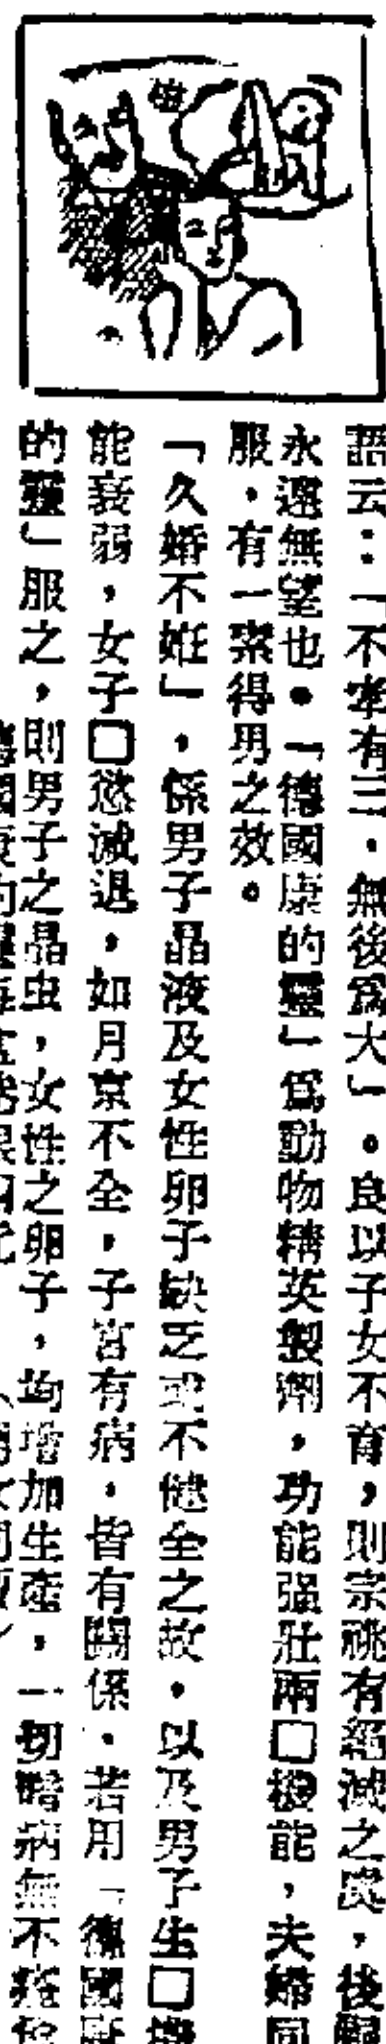 語云：「不孝有三，無後爲大」。良以子女不育，則宗祧有絕滅之虞，後嗣
永遠無望也。「德國康的靈」爲動物精英製劑，功能强壯兩□機能，夫婦同
服，有一索得男之效。
「久婚不姙」，係男子晶液及女性卵子缺乏或不健全之故，以及男子生□機
能衰弱，女子□慾減退，如月京不全，子宮有病，皆有關係，若用「德國康
的靈」服之，則男子之晶虫，女性之卵子，均增加生產，一切暗病無不痊愈